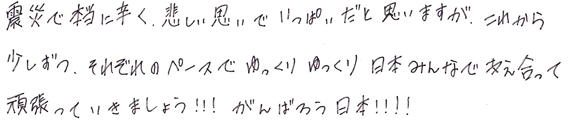 震災で本当に辛く、悲しい思いでいっぱいだと思いますが、これから
少しずつ、それぞれのペースでゆっくりゆっくり日本みんなで支え合って
頑張っていきましょう!!! がんばろう日本!!!!